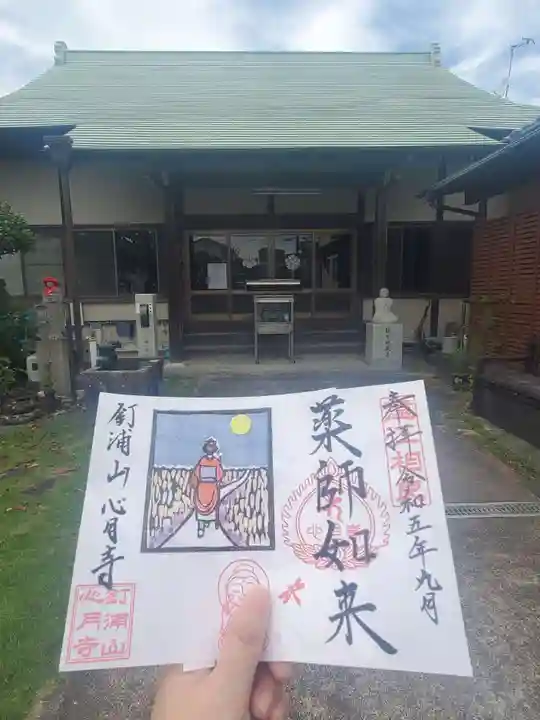 奉拝
令和五年九月
薬師如来
釘浦山心月寺
釘浦山
心月寺